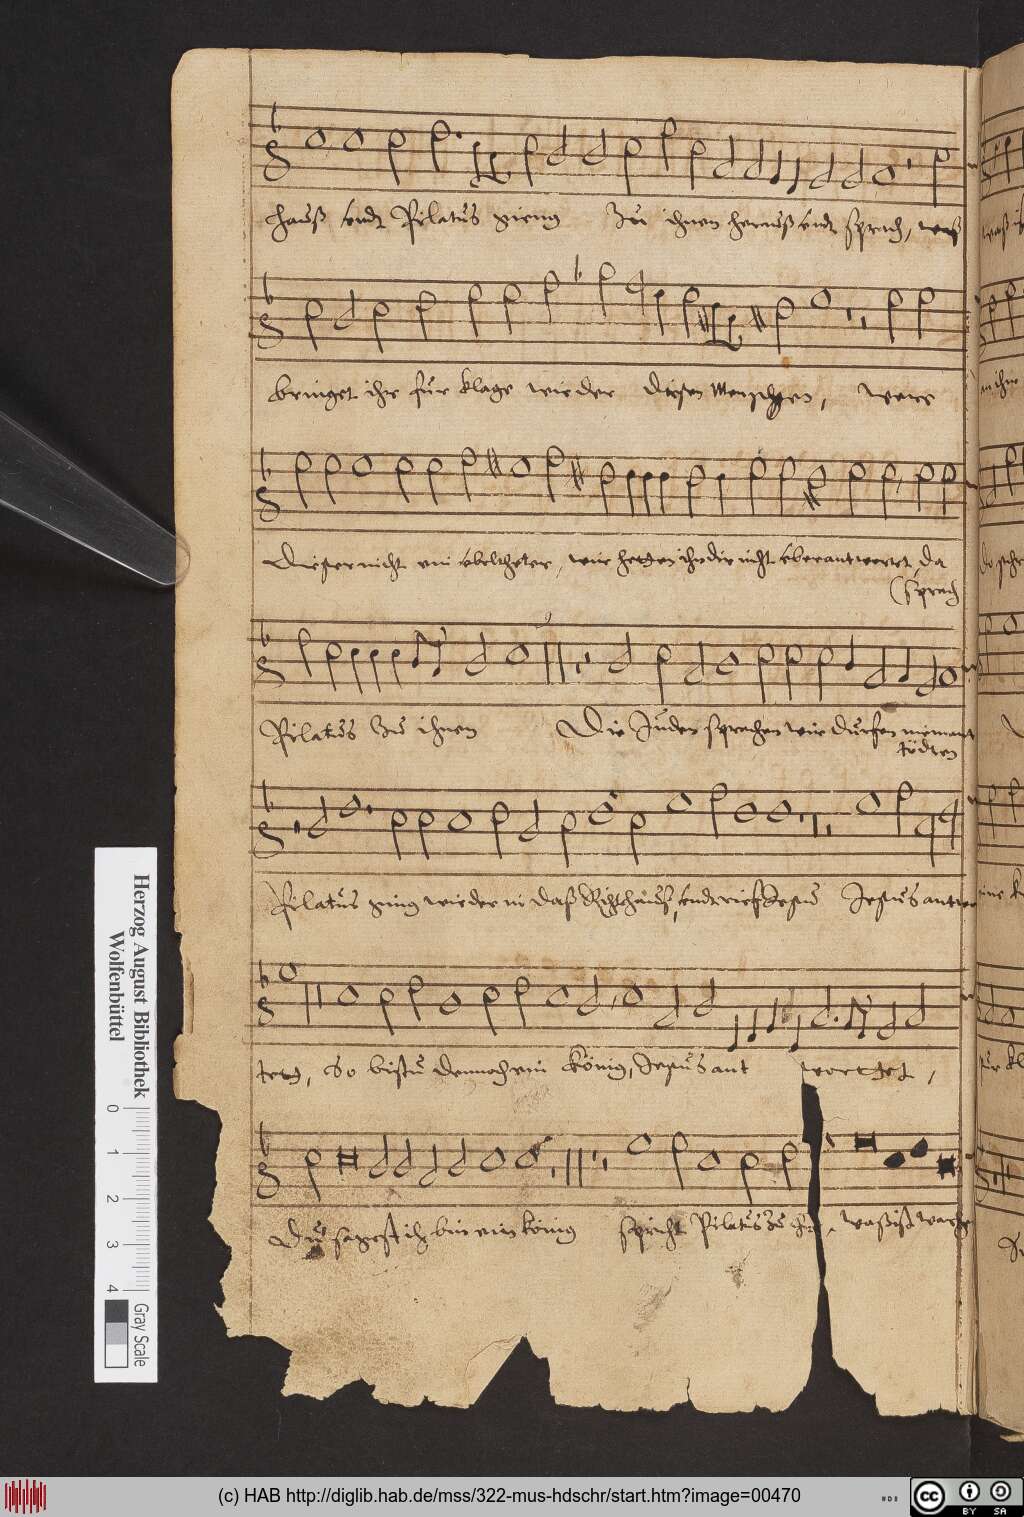 hauß undt Pilatus gieng Zu ihnen herauß undt sprach, waß
bringet ihr für klage wieder diesen Menschen, were
Dieser nicht ein ubeltheter, wir hetten ihn dir nicht uberantwortet, da
(sprach
Pilatus Zu ihnen Die Juden sprachen wir durfen niemant
tödten
Pilatus ging wieder in daß Richthauß, undt rief Jesu Jesus antwor
tett, So bistu dennoch ein könig, Jesus ant worttet,
Du sagest ich bin ein könig spricht Pilatus Zu ihm, waß ist warheit
Herzog August Bibliothek
Wolfenbüttel
0 1 2 3 4 Gray Scale
(c) HAB http://diglib.hab.de/mss/322-mus-hdschr/start.htm?image=00470
cc BY SA